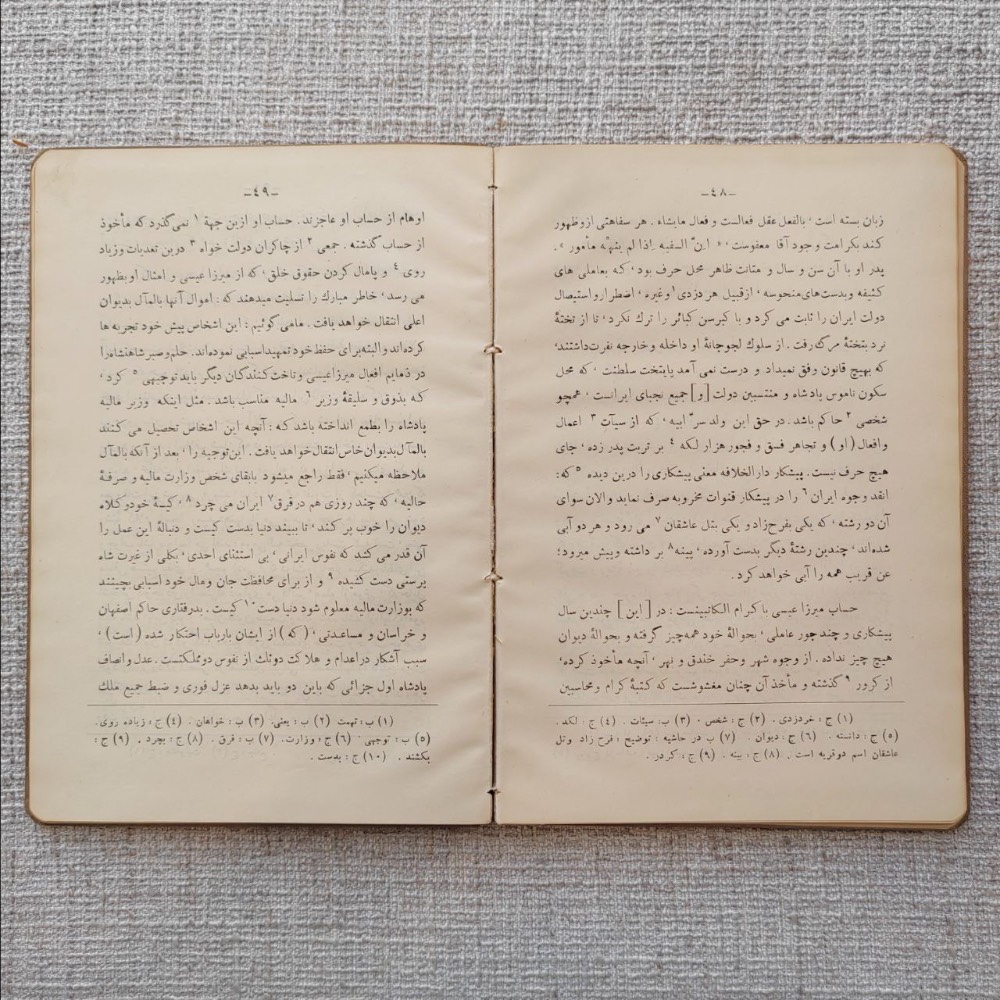 ـ٤٨ـ
زبان بسته است ، بالفعل عقل فعالست و فعال مایشاه . هر سفاهتی ازو ظهور
کند بکرامت وجود آقا معفوست ، « ان السفیه اذا لم ینهه مأمور » .
پدر او با آن سن و سال و متانت ظاهر محل حرف بود ، که بعاملی های
کثیفه و بدست‌های منحوسه ، از قبیل هر دزدی ١ و غیره ، اضطرار و استیصال
دولت ایران را ثابت می کرد و با کبر سن کبائر را ترك نکرد ، تا از تختهٔ
نرد بتختهٔ مرگ رفت . از سلوك لجوجانهٔ او داخله و خارجه نفرت داشتند ،
که بهیچ قانون وفق نمیداد و درست نمی آمد پایتخت سلطنت ، که محل
سکون ناموس پادشاه و منتسبین دولت [و] جمیع نجبای ایرانست ، همچو
شخصی ٢ حاکم باشد . در حق این ولد سرّ ابیه ، که از سیآت ٣ اعمال
و افعال (او) و تجاهر فسق و فجور هزار لکه ٤ بر تربت پدر زده ، جای
هیچ حرف نیست . پیشکار دارالخلافه معنی پیشکاری را درین دیده ٥ که :
انقد وجوه ایران ٦ را در پیشکار قنوات مخروبه صرف نماید و الان سوای
آن دو رشته ، که یکی بفرح‌زاد و یکی بتل عاشقان ٧ می رود و هر دو آبی
شده‌اند ، چندین رشتهٔ دیگر بدست آورده ، پینه ٨ بر داشته و پیش میرود ؛
عن قریب همه را آبی خواهد کرد .
حساب میرزا عیسی با کرام الکاتبینست : در [ این ] چندین سال
پیشکاری و چند جور عاملی ، بحوالهٔ خود همه چیز گرفته و بحوالهٔ دیوان
هیچ چیز نداده . از وجوه شهر و حفر خندق و نهر ، آنچه مأخوذ کرده ،
از کرور ٩ گذشته و مأخذ آن چنان مغشوشست که کتبهٔ کرام و محاسبین
(١) ج : خردزدی . (٢) ج : شخص . (٣) ب : سیئات . (٤) ج : لکد .
(٥) ج : دانسته . (٦) ج : دیوان . (٧) ب در حاشیه : توضیح : فرح زاد و تل
عاشقان اسم دوقریه است . (٨) ج : بینه . (٩) ج : کردر .
ـ٤٩ـ
اوهام از حساب او عاجزند . حساب او ازین جهة ١ نمی‌گذرد که مأخوذ
از حساب گذشته . جمعی ٢ از چاکران دولت خواه ٣ درین تعدیات و زیاد
روی ٤ و پامال کردن حقوق خلق ، که از میرزا عیسی و امثال او بظهور
می رسد ، خاطر مبارك را تسلیت میدهند که : اموال آنها بالمآل بدیوان
اعلی انتقال خواهد یافت . مامی گوئیم : این اشخاص پیش خود تجربه ها
کرده‌اند و البته برای حفظ خود تمهید اسبابی نموده‌اند . حلم و صبر شاهنشاه را
در ذمایم افعال میرزا عیسی و تاخت کنندگان دیگر باید توجیهی ٥ کرد ،
که بذوق و سلیقهٔ وزیر ٦ مالیه مناسب باشد . مثل اینکه وزیر مالیه
پادشاه را بطمع انداخته باشد که : آنچه این اشخاص تحصیل می کنند
بالمآل بدیوان خاص انتقال خواهد یافت . این توجیه را ، بعد از آنکه بالمآل
ملاحظه میکنیم ، فقط راجع میشود بابقای شخص وزارت مالیه و صرفهٔ
حالیه ، که چند روزی هم در فرق ٧ ایران می چرد ٨ ، کیسهٔ خود و کلاه
دیوان را خوب پر کند ، تا ببیند دنیا بدست کیست و دنبالهٔ این عمل را
آن قدر می کشد که نفوس ایرانی ، بی استثنای احدی ، بکلی از غیرت شاه
پرستی دست کشیده ٩ و از برای محافظت جان و مال خود اسبابی بچینند
که بوزارت مالیه معلوم شود دنیا دست ١٠ کیست . بدرفتاری حاکم اصفهان
و خراسان و مساعدتی ، (که) از ایشان بارباب احتکار شده (است) ،
سبب آشکار در اعدام و هلاکت دوثلث از نفوس دومملکتست . عدل و انصاف
پادشاه اول جزائی که باین دو باید بدهد عزل فوری و ضبط جمیع ملك
(١) ب : تهمت (٢) ب : یعنی . (٣) ب : خواهان . (٤) ج : زیاده روی .
(٥) ب : توجهی . (٦) ج : وزارت . (٧) ب : قرق . (٨) ج : بچرد . (٩) ج :
بکشند . (١٠) ج : بدست .